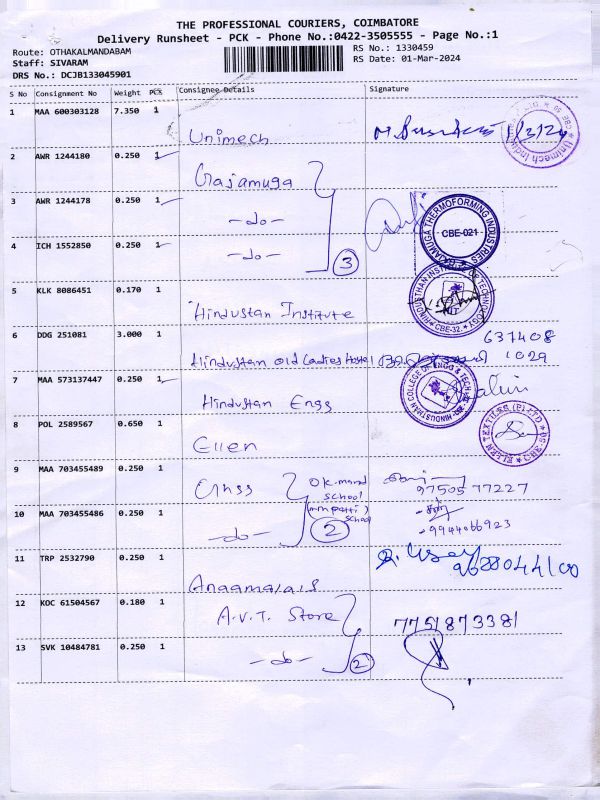 THE PROFESSIONAL COURIERS, COIMBATORE
Delivery Runsheet - PCK - Phone No.:0422-3505555 - Page No.:1
Route: OTHAKALMANDABAM
RS No.: 1330459
Staff: SIVARAM
RS Date: 01-Mar-2024
DRS No.: DCJB133045901
S No Consignment No Weight PCS Consignee Details Signature
1 MAA 600303128 7.350 1
Unimech
1/3/24
2 AWR 1244180 0.250 1
Gajamuga
3 AWR 1244178 0.250 1
-do-
GAJAMUGA THERMOFORMING INDUSTRIES
CBE-021
4 ICH 1552850 0.250 1
-do-
3
HINDUSTHAN INSTITUTE OF TECHNOLOGY
HIT
CBE-32
5 KLK 8086451 0.170 1
Hindustan Institute
6 DDG 251081 3.000 1
637408
Hindustan Old Ladies Hostel
1029
7 MAA 573137447 0.250 1
Hindustan Engg
HINDUSTHAN COLLEGE OF ENGG & TECH
8 POL 2589567 0.650 1
Ellen
ELLEN TEXTILES (P) LTD
9 MAA 703455489 0.250 1
Ghss
school
97505 77227
10 MAA 703455486 0.250 1
school
-do-
2
-9944066923
11 TRP 2532790 0.250 1
Anaamalais
12 KOC 61504567 0.180 1
A.V.T. Store
7751873381
13 SVK 10484781 0.250 1
-do-
2